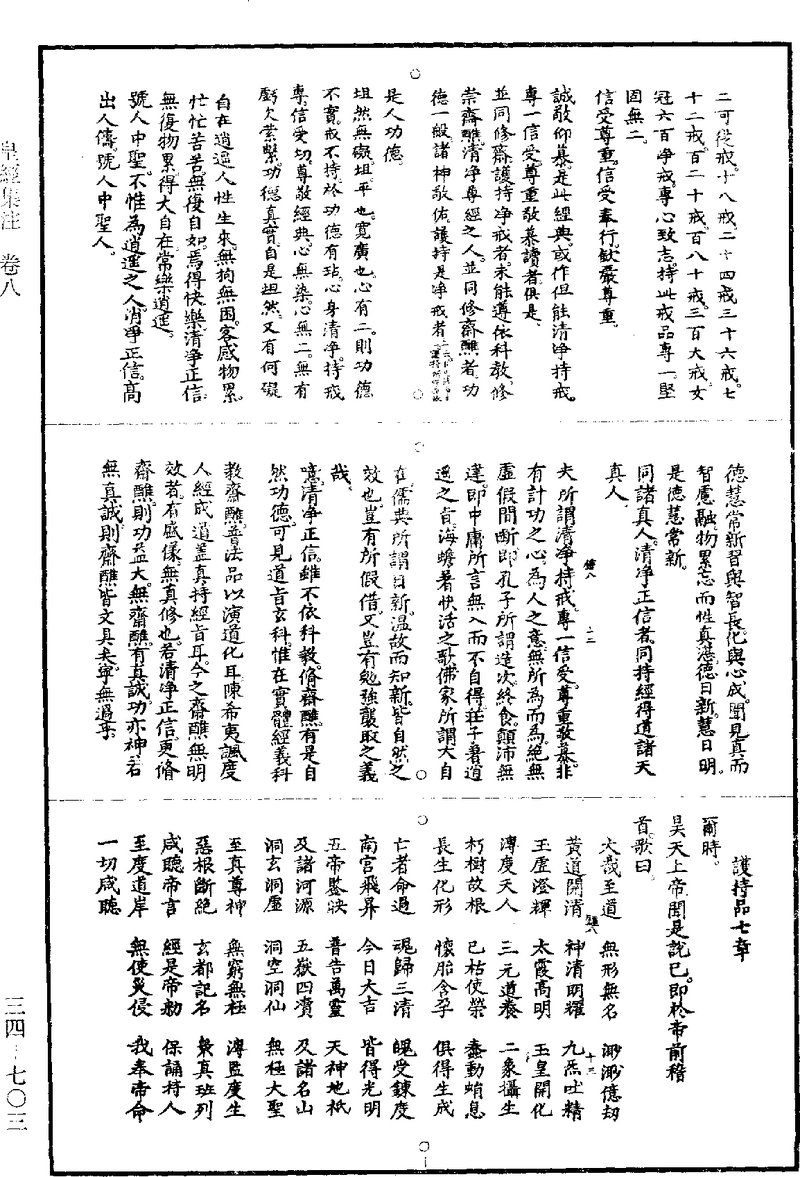 二可從戒。十八戒。二十四戒。三十六戒。七
十二戒。百二十戒。百八十戒。三百大戒。女
冠六百淨戒。專心致志。持此戒品專一堅
固無二。
信受尊重。信受奉行。欽嚴尊重。
誠敬仰慕。是此經典。或作但能清淨持戒。
專一信受。尊重敬慕。讀者俱是。
並同修齋。護持淨戒者。未能遵依科教。修
崇齋醮。清淨尊經之人。並同修齋醮者。功
德一般。諸神敬佑。護持是淨戒者
是人功德。
坦然無礙。坦平也。寬廣也。心有二。則功德
不實。戒不持。於功德有玷。心身清淨。持戒
專。信受切。尊敬經典。心無染。心無二。無有
虧欠縈繫。功德真實。自是坦然。又有何礙
自在逍遥。人性生來。無拘無困。客感物累。
忙忙苦苦。無復自如。焉得快樂。清淨正信
無復物累。得大自在。常樂逍遥。
號人中聖。不惟為逍遥之人。清淨正信。高
出人儔。號人中聖人。
德慧常新。習與智長。化與心成。聞見真而
智慮融。物累忘而性真湛。德日新。慧日明。
是德慧常新。
同諸真人。清淨正信者。同持經得道諸天
真人。
夫所謂清淨持戒。專一信受。尊重敬慕。非
有計功之心。為人之意。無所為而為。絕無
虛假間斷。即孔子所謂造次終食。顛沛無
違。即中庸所言無入而不自得。莊子著逍
遥之旨。海蟾著快活之歌。佛家所謂大自
在。儒典所謂日新。温故而知新。皆自然之
效也。豈有所假借。又豈有勉強襲取之義
哉。
噫。清淨正信。雖不依科教。脩齋醮。有是自
然功德。可見道旨玄科。惟在實體經義。科
教齋醮。普法品以演道化耳。陳希夷諷度
人經。成道。盖真持經旨耳。今之齋醮。無明
效者。有感傷。無真修也。若清淨正信。更脩
齋醮。則功益大。無齋醮。有真誠。功亦神。若
無真誠。則齋醮皆文具夫。寧無過乎。
護持品七章
爾時。
昊天上帝。聞是說已。即於帝前稽
首。歌曰。
大哉至道　無形無名　渺渺億劫
黃道開清　神清明耀　九炁吐精
玉虛澄輝　太霞高明　玉皇開化
溥度天人　三元道養　二象攝生
朽樹故根　已枯使榮　蠢動蛸息
長生化形　懷胎含孕　俱得生成
亡者命過　魂歸三清　魄受鍊度
南宮飛昇　今日大吉　皆得光明
五帝鑒映　普告萬靈　天神地祇
及諸河源　五嶽四瀆　及諸名山
洞玄洞虛　洞空洞仙　無極大聖
至真尊神　無窮無極　溥監度生
惡根斷絕　玄都記名　稟真班列
咸聽帝言　經是帝勑　保誦持人
至度道岸　無使災侵　我奉帝命
一切咸聽
皇經集注　卷八
三四－七〇三